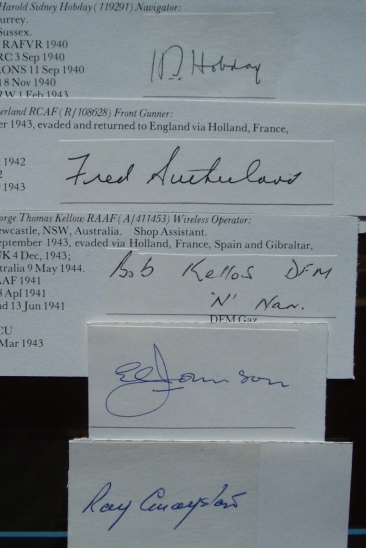 Harold Sidney Hobday (119291) Navigator:
urrey.
Sussex.
RAFVR 1940
RC 3 Sep 1940
ONS 11 Sep 1940
18 Nov 1940
RW 1 Feb 1943
Hobday
erland RCAF (R/108628) Front Gunner:
er 1943, evaded and returned to England via Holland, France,
1942
2
r 1943
Fred Sutherland
orge Thomas Kellow RAAF (A/411453) Wireless Operator:
ewcastle, NSW, Australia. Shop Assistant.
eptember 1943, evaded via Holland, France, Spain and Gibraltar,
UK 4 Dec, 1943;
tralia 9 May 1944.
AAF 1941
8 Apl 1941
nd 13 Jun 1941
CU
Mar 1943
Bob Kellow DFM
'N' Nan.
DFM Gaz
Johnson
Ray Grayston